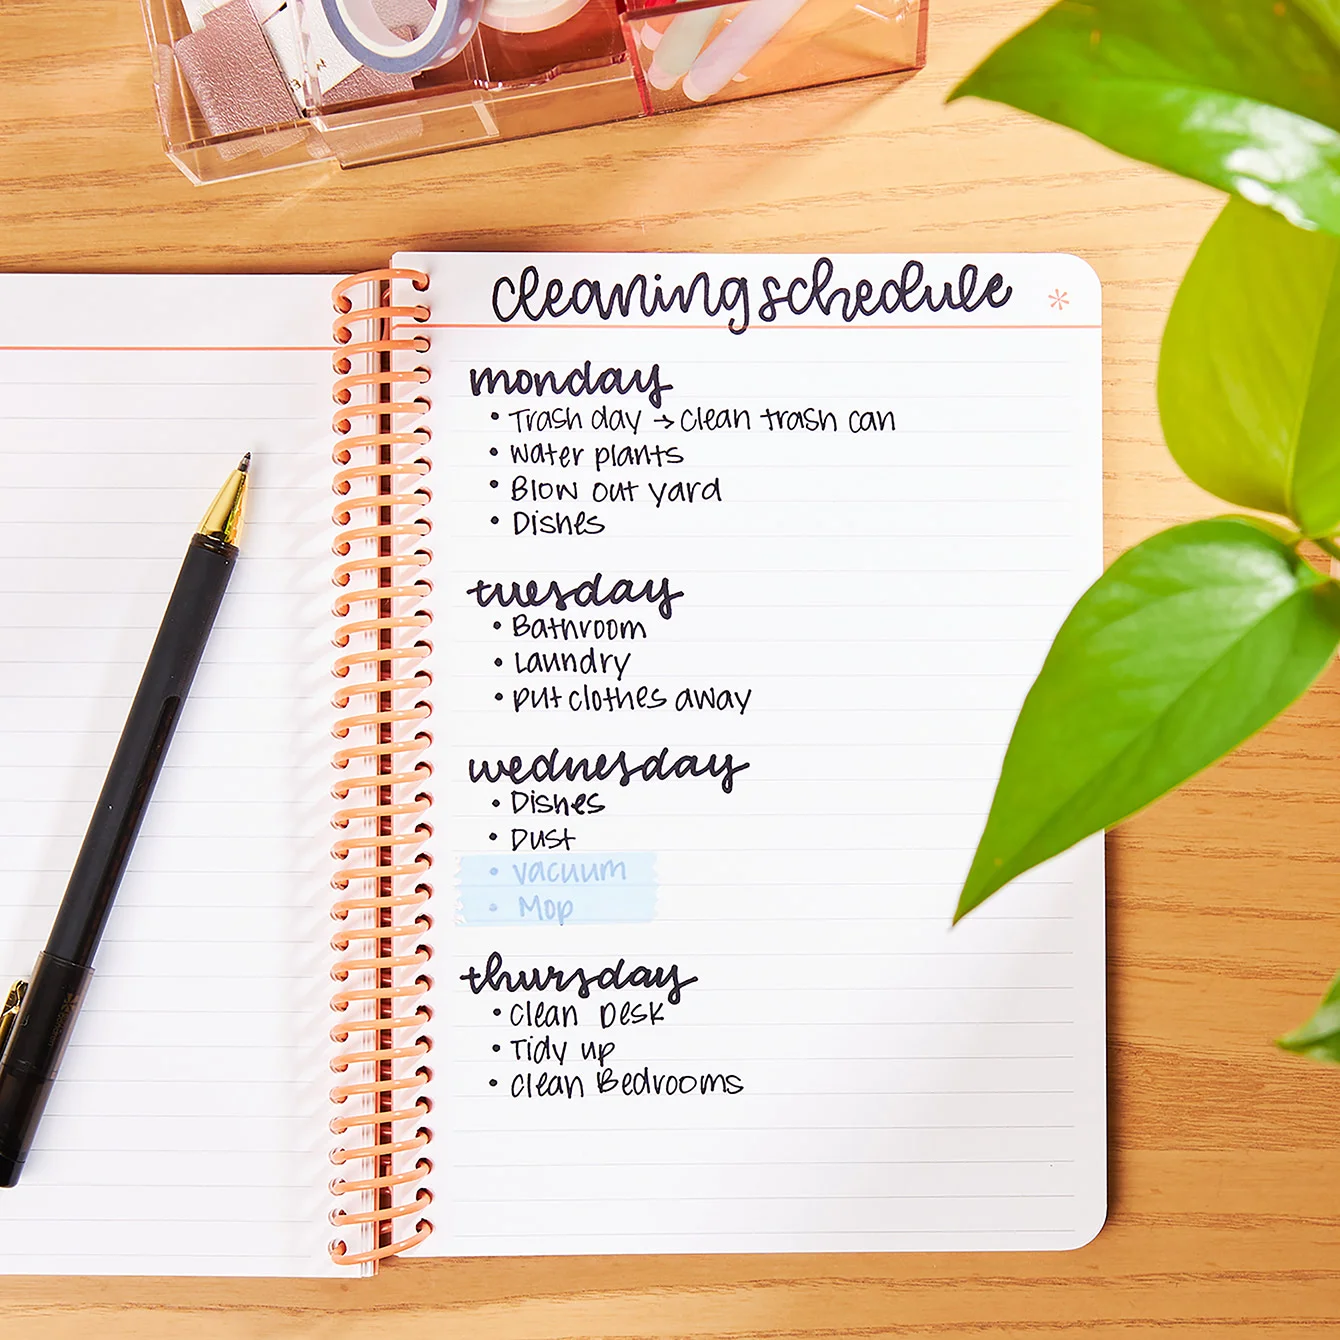 cleaning schedule
monday
• Trash day → clean trash can
• Water plants
• Blow out yard
• Dishes
tuesday
• Bathroom
• Laundry
• Put clothes away
wednesday
• Dishes
• Dust
• Vacuum
• Mop
thursday
• Clean Desk
• Tidy up
• Clean Bedrooms